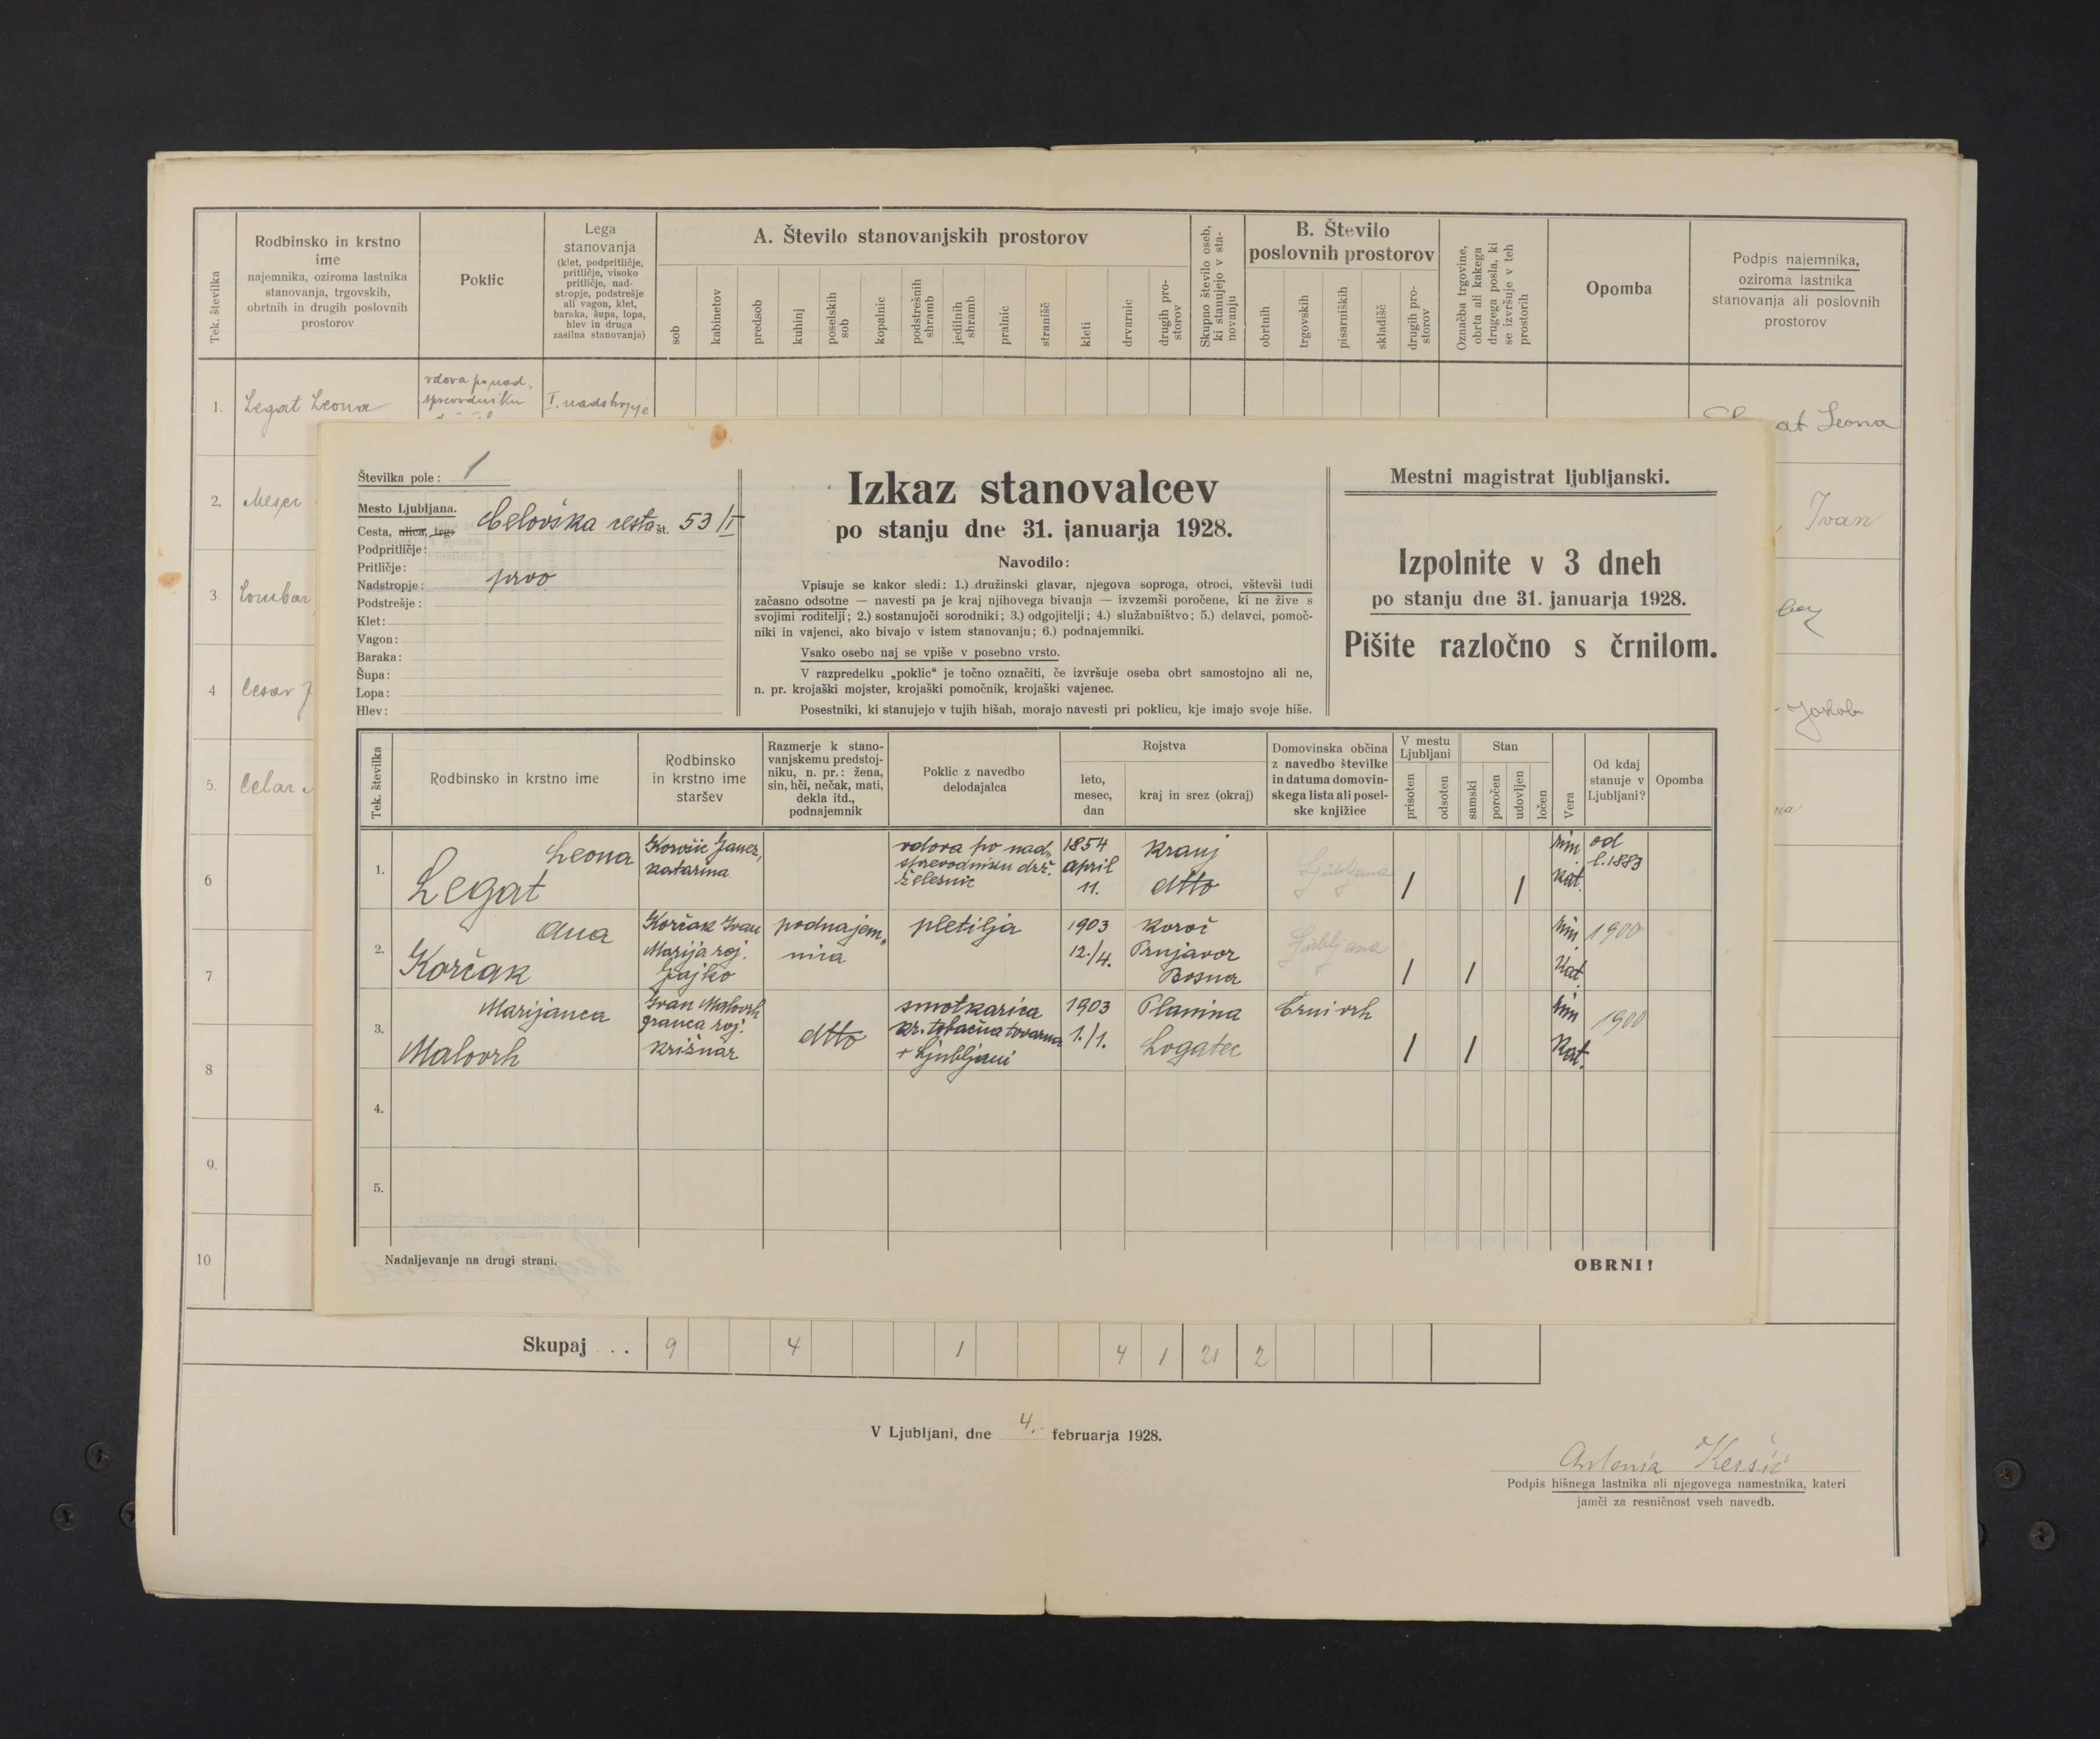 Tek. številka
Rodbinsko in krstno
ime
najemnika, oziroma lastnika
stanovanja, trgovskih,
obrtnih in drugih poslovnih
prostorov
Poklic
Lega
stanovanja
(klet, podpritličje,
pritličje, visoko
pritličje, nad-
stropje, podstrešje
ali vagon, klet,
baraka, šupa, lopa,
hlev in druga
zasilna stanovanja)
A. Število stanovanjskih prostorov
sob
kabinetov
predsob
kuhinj
poselskih
sob
kopalnic
podstrešnih
shramb
jedilnih
shramb
pralnic
stranišč
kleti
drvarnic
drugih pro-
storov
Skupno število oseb,
ki stanujejo v sta-
novanju
B. Število
poslovnih prostorov
obrtnih
trgovskih
pisarniških
skladišč
drugih pro-
storov
Označba trgovine,
obrta ali kakega
drugega posla, ki
se izvršuje v teh
prostorih
Opomba
Podpis najemnika,
oziroma lastnika
stanovanja ali poslovnih
prostorov
1. Legat Leona
vdova po nad-
sprevodniku
I. nadstropje
at Leona
2.
Ivan
3. Lombar
4 Cesar J
Jakob
5. Celar
6
7
8
9.
10
Številka pole: 1
Mesto Ljubljana.
Cesta, ulica, trg: Celovška cesta št. 53/I
Podpritličje:
Pritličje:
Nadstropje: prvo
Podstrešje:
Klet:
Vagon:
Baraka:
Šupa:
Lopa:
Hlev:
Izkaz stanovalcev
po stanju dne 31. januarja 1928.
Navodilo:
Vpisuje se kakor sledi: 1.) družinski glavar, njegova soproga, otroci, vštevši tudi
začasno odsotne — navesti pa je kraj njihovega bivanja — izvzemši poročene, ki ne žive s
svojimi roditelji; 2.) sostanujoči sorodniki; 3.) odgojitelji; 4.) služabništvo; 5.) delavci, pomoč-
niki in vajenci, ako bivajo v istem stanovanju; 6.) podnajemniki.
Vsako osebo naj se vpiše v posebno vrsto.
V razpredelku „poklic“ je točno označiti, če izvršuje oseba obrt samostojno ali ne,
n. pr. krojaški mojster, krojaški pomočnik, krojaški vajenec.
Posestniki, ki stanujejo v tujih hišah, morajo navesti pri poklicu, kje imajo svoje hiše.
Mestni magistrat ljubljanski.
Izpolnite v 3 dneh
po stanju dne 31. januarja 1928.
Pišite razločno s črnilom.
Tek. številka
Rodbinsko in krstno ime
Rodbinsko
in krstno ime
staršev
Razmerje k stano-
vanjskemu predstoj-
niku, n. pr.: žena,
sin, hči, nečak, mati,
dekla itd.,
podnajemnik
Poklic z navedbo
delodajalca
Rojstva
leto,
mesec,
dan
kraj in srez (okraj)
Domovinska občina
z navedbo številke
in datuma domovin-
skega lista ali posel-
ske knjižice
V mestu
Ljubljani
prisoten
odsoten
Stan
samski
poročen
udovljen
ločen
Vera
Od kdaj
stanuje v
Ljubljani?
Opomba
1.
Leona
Legat
Janez,
Katarina
vdova po nad-
sprevodniku drž.
železnic
1854
april
11.
Kranj
dtto
Ljubljana
/
/
rim.
kat.
od
l. 1883
2.
Ana
Korčak
Korčak Ivan
Marija roj.
Gajko
podnajem-
nica
pletilja
1903
12./4.
Koroč
Prnjavor
Bosna
Ljubljana
/
/
rim.
Kat.
1900
3.
Marijanca
Malovrh
Ivan Malovrh
Franca roj.
Krišnar
dtto
smotkarica
kr. tobačna tovarna
v Ljubljani
1903
1./1.
Planina
Logatec
Črni vrh
/
/
rim
Kat.
1900
4.
5.
Nadaljevanje na drugi strani.
OBRNI!
Skupaj . . . 9 4 1 4 1 21 2
V Ljubljani, dne 4. februarja 1928.
Antonia Keršič
Podpis hišnega lastnika ali njegovega namestnika, kateri
jamči za resničnost vseh navedb.